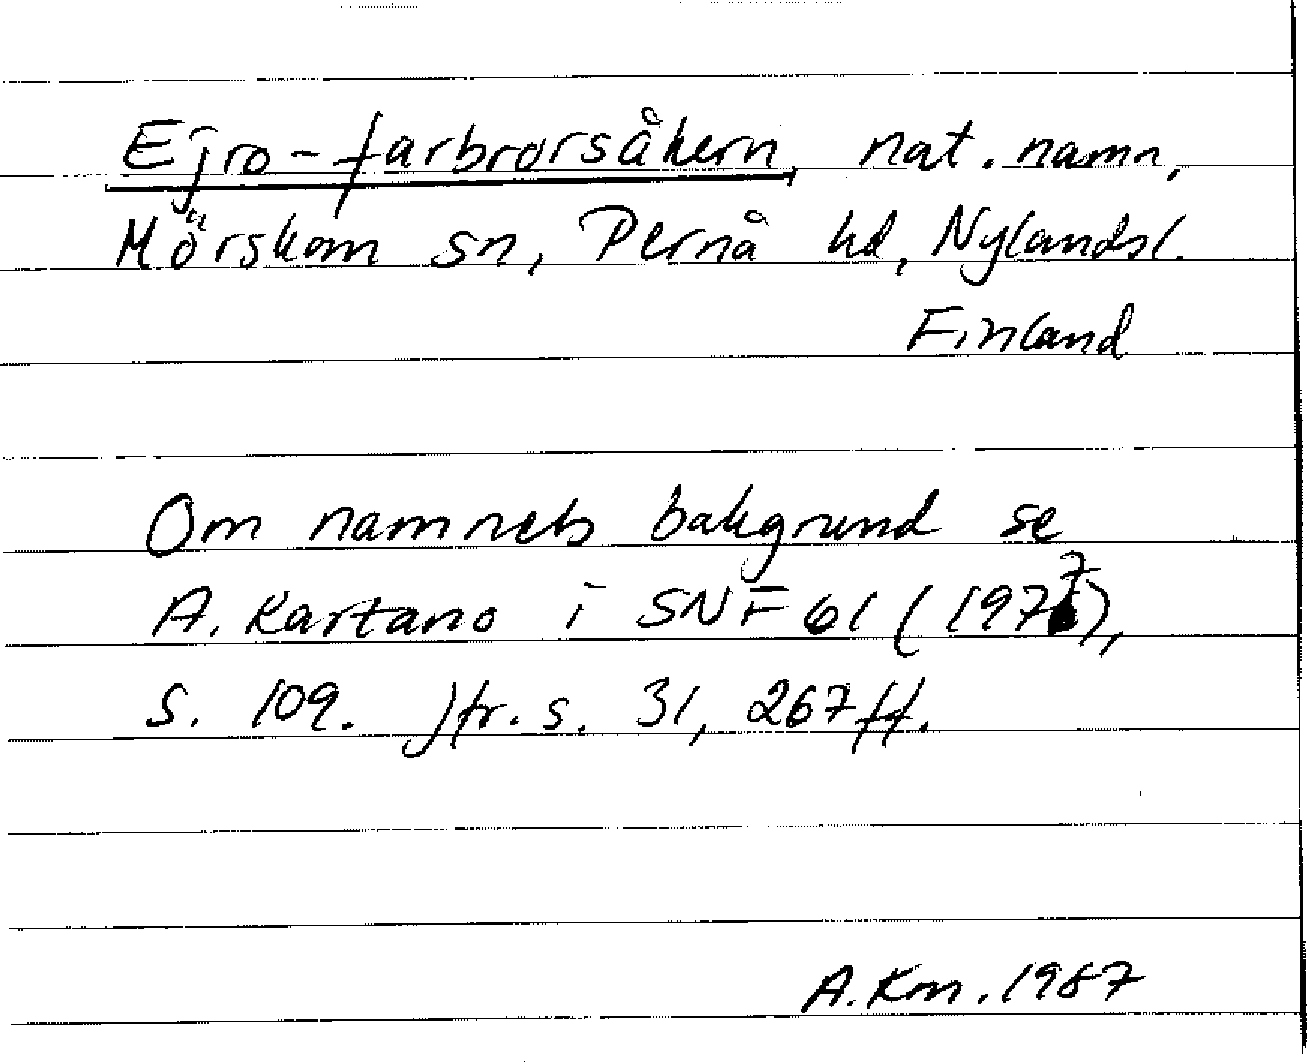 Ejro-farbrorsåkern, nat. namn,
Mörskom sn, Pernå hd, Nylandsl.
Finland
Om namnets bakgrund se
A. Kartano i SNF 61 (1977),
s. 109. Jfr. s. 31, 267 ff.
A.Km. 1987